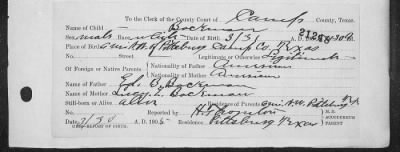 To the Clerk of the County Court of Camp County, Texas.
Name of Child Bockman
Sex male Race white Date of Birth 3/31 A. D.
Place of Birth 4 mi N.W. of Pittsburg Camp Co. Texas
No. Street Legitimate or Otherwise Legitimate
Of Foreign or Native Parents Nationality of Father American
Nationality of Mother American
Name of Father B. Bockman
Name of Mother Lucy L. Bockman
Residence of Parents 4 mi N.W. Pittsburg
Still-born or Alive alive
Reported by M. D.
ACCOUCHEUR
PARENT
Date 3/30 A. D. 190 Residence Pittsburg Texas
REPORT OF BIRTH.